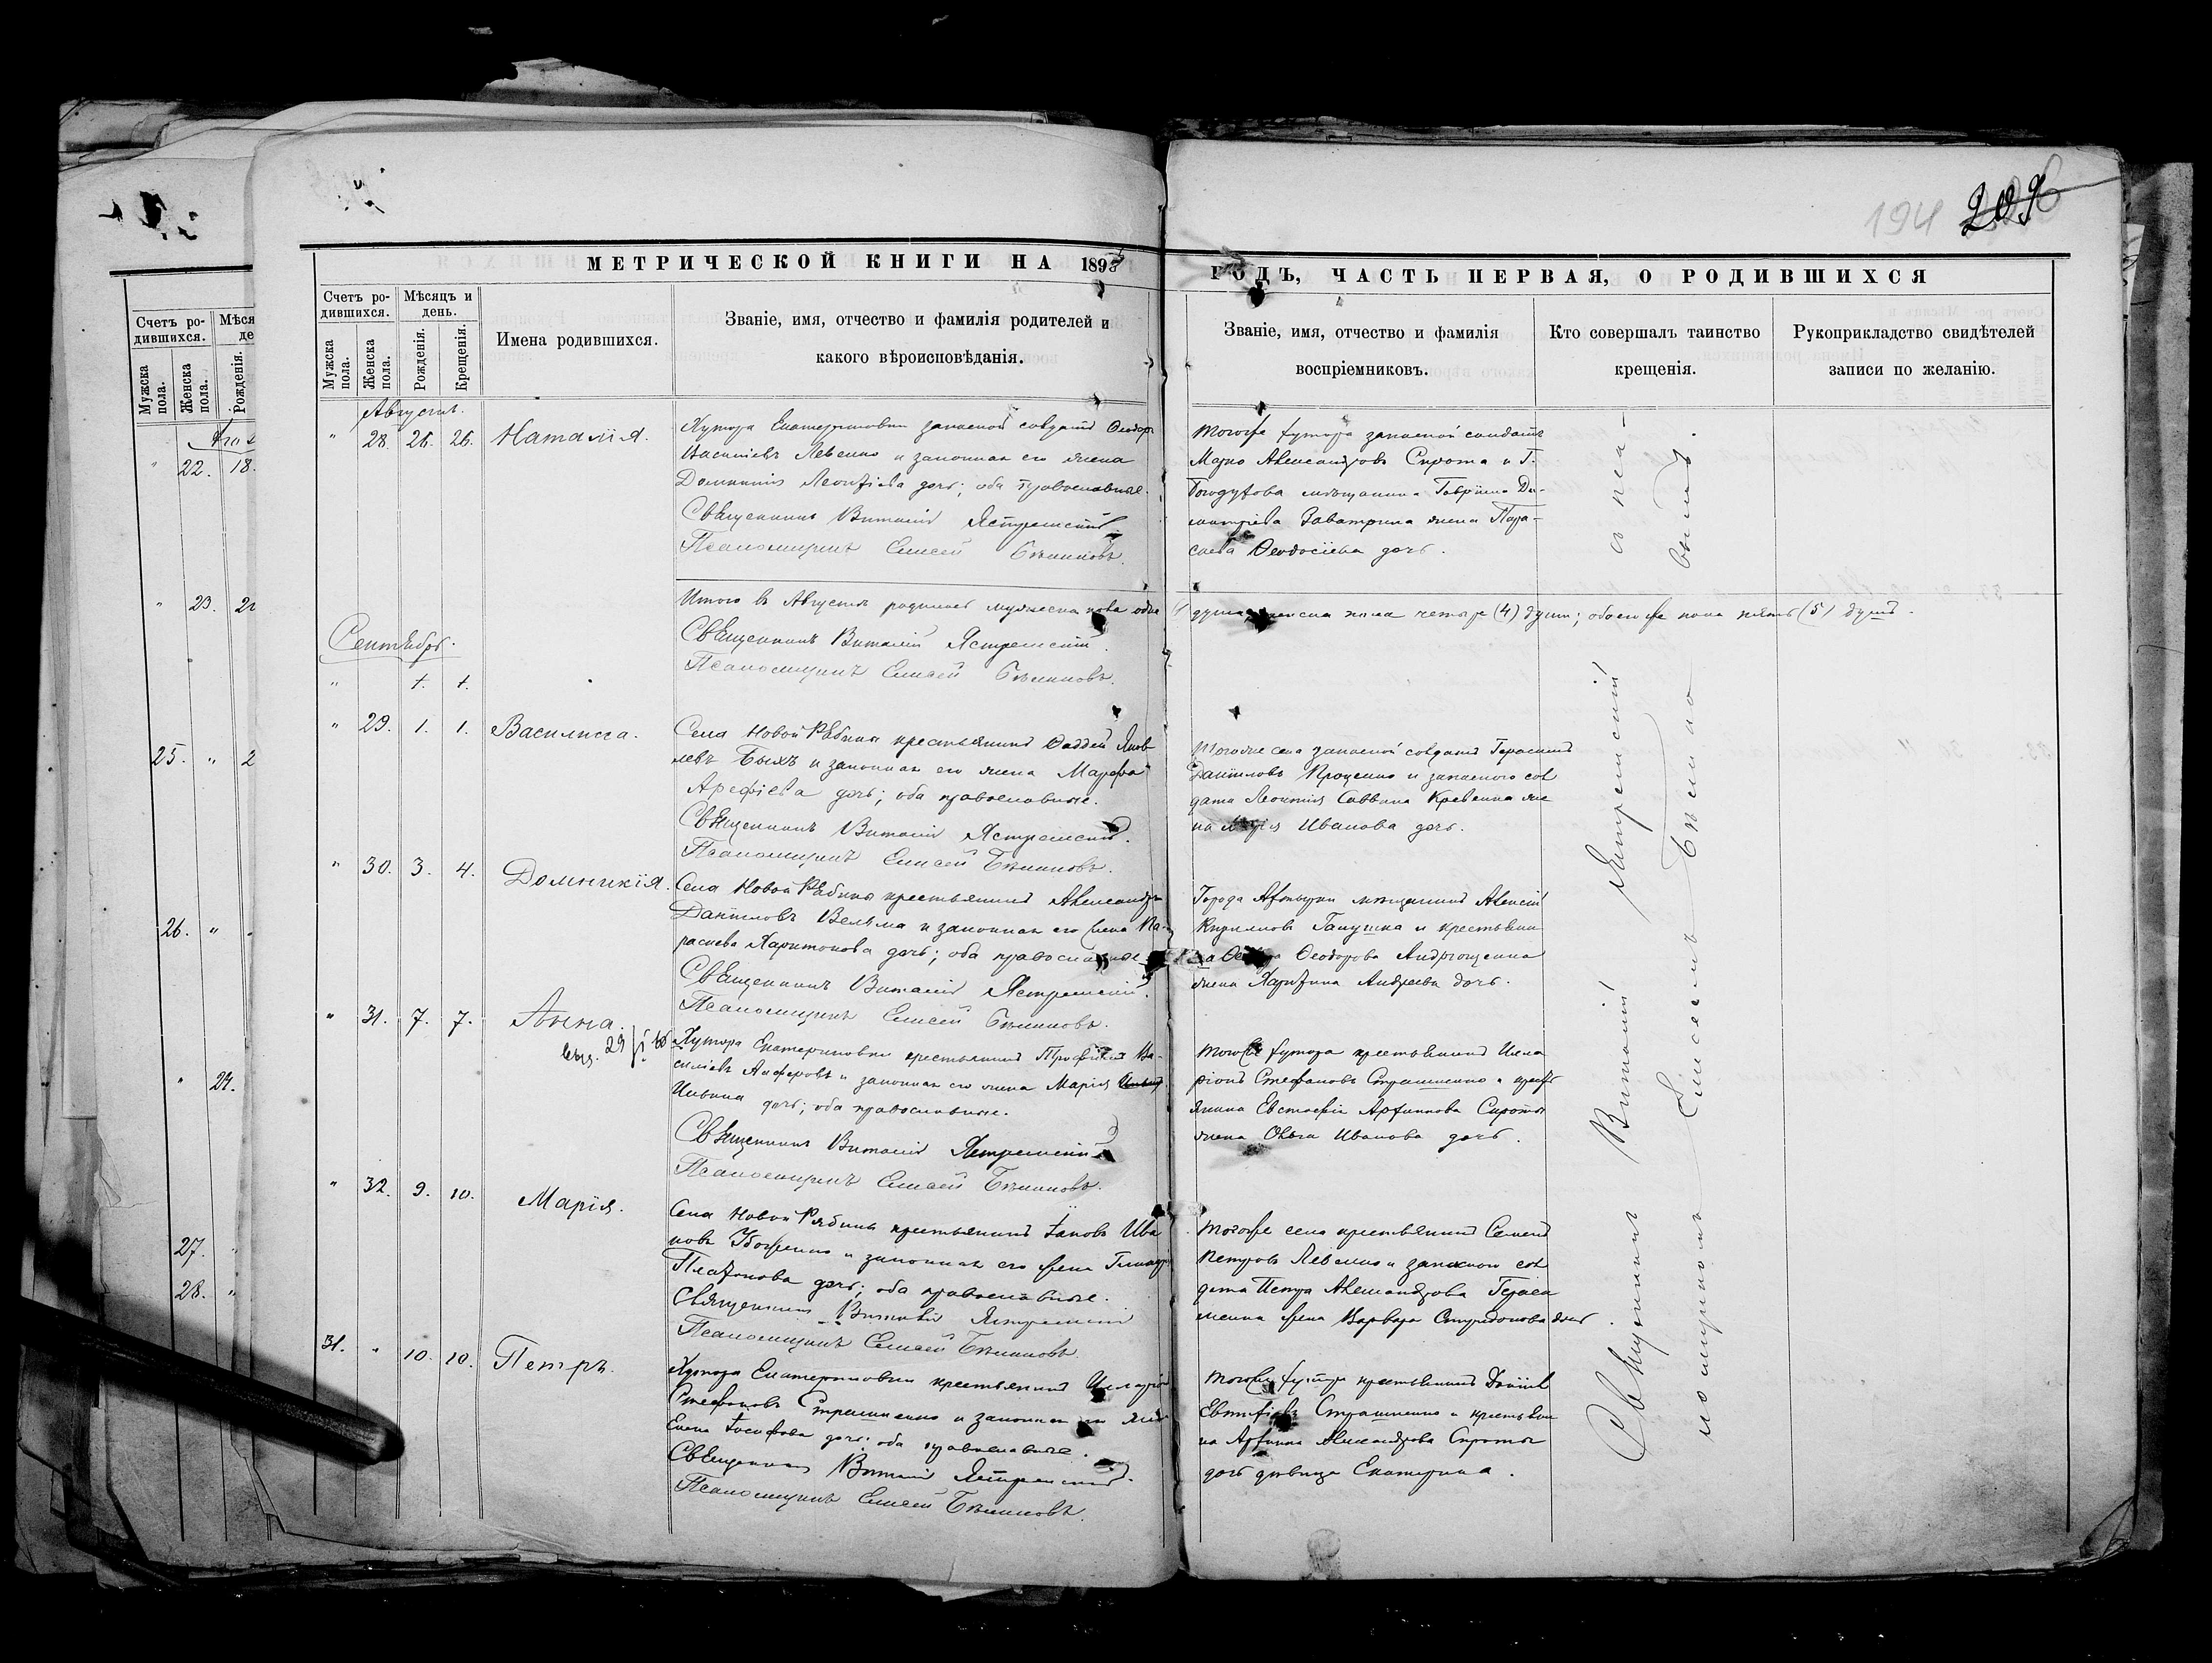 194 209
МЕТРИЧЕСКОЙ КНИГИ НА 1893 ГОДЪ, ЧАСТЬ ПЕРВАЯ, О РОДИВШИХСЯ
Счетъ родившихся.
Мѣсяцъ и день.
Мужска пола.
Женска пола.
Рожденія.
Крещенія.
Имена родившихся.
Званіе, имя, отчество и фамилія родителей и
какого вѣроисповѣданія.
Званіе, имя, отчество и фамилія
воспріемниковъ.
Кто совершалъ таинство
крещенія.
Рукоприкладство свидѣтелей
записи по желанію.
Счетъ ро-
дившихся.
Мужска пола.
Женска пола.
Рожденія.
22. 18.
23.
25. "
26. "
27.
28.
Августъ.
" 28. 26. 26. Наталія.
Хутора Екатериновки запасной солдатъ Ѳеодоръ
Васильевъ Левенко и законная его жена
Домникія Леонтіева дочь; оба православные.
Священникъ Виталій Ястремскій
Псаломщикъ Елисей
Тогоже хутора запасной солдатъ
Марко Александровъ Сирота и Г.
Богодухова мѣщанина Гавріила Ди-
митріева жена Пара-
скева Ѳеодосіева дочь.
Итого въ Августѣ родилось мужеска пола одна душа женска пола четыре (4) души; обоего же пола пять (5) душъ.
Священникъ Виталій Ястремскій.
Псаломщикъ Елисей
Сентябрь.
" 29. 1. 1. Василисса.
Села Новой Рябины крестьянинъ Ѳаддей Яков-
левъ Быхъ и законная его жена Марѳа
Арефіева дочь; оба православные.
Священникъ Виталій Ястремскій.
Псаломщикъ Елисей
Тогоже села запасной солдатъ Герасимъ
Даніиловъ Проценко и запасного сол
дата Леонтія Саввина же
на Марія Иванова дочь.
" 30. 3. 4. Домникія.
Села Новой Рябины крестьянинъ Александръ
Даніиловъ Вельма и законная его жена Па-
раскева Харитонова дочь; оба православные
Священникъ Виталій Ястремскій.
Псаломщикъ Елисей
Города Ахтырки мѣщанинъ Алексій
Кирилловъ и крестьяни
на Ѳеодорова Андрющенка
жена Харитина Андреева дочь.
" 31. 7. 7. Анна.
Хутора Екатериновки крестьянинъ Трофимъ Ва-
сильевъ и законная его жена Марія
Ильина дочь; оба православные.
Священникъ Виталій Ястремскій
Псаломщикъ Елисей
Тогоже хутора крестьянинъ Илла
ріонъ Стефановъ Страшненко и крест
янина Евстафія Сироты
жена Ольга Иванова дочь.
" 32. 9. 10. Марія.
Села Новой Рябины крестьянинъ Іаковъ Ива
новъ Убоженко и законная его жена
Платонова дочь; оба православные.
Священникъ Виталій Ястремскій
Псаломщикъ Елисей
Тогоже села крестьянинъ Семенъ
Петровъ Левенко и запасного сол
дата Петра Александрова Гераси
менка жена Варвара Спиридонова дочь.
31. " 10. 10. Петръ.
Хутора Екатериновки крестьянинъ Илларіонъ
Стефановъ Страшненко и законная его жена
Елена Іосифова дочь; оба православные.
Священникъ Виталій Ястремскій.
Псаломщикъ Елисей
Тогоже хутора крестьянинъ Даніилъ
Евтихіевъ Страшненко и крестьяни
на Александрова Сироты
дочь дѣвица Екатерина.
Священникъ Виталій Ястремскій съ пса-
ломщикомъ Елисеемъ